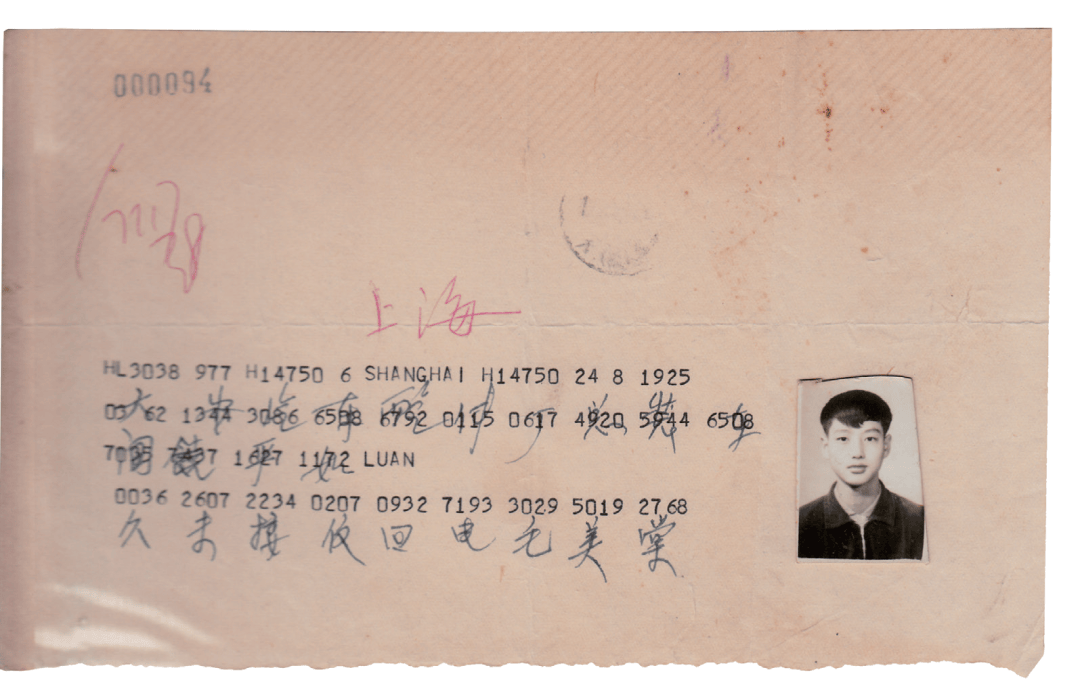 000094
上海
HL3038 977 H14750 6 SHANGHAI H14750 24 8 1925
03 62 1344 3086 6508 6792 0115 0617 4920 5944 6508
六安汽车配件厂总装车
1627 1172 LUAN
间饶平如
0036 2607 2234 0207 0932 7193 3029 5019 2768
久未接伩回电毛美棠